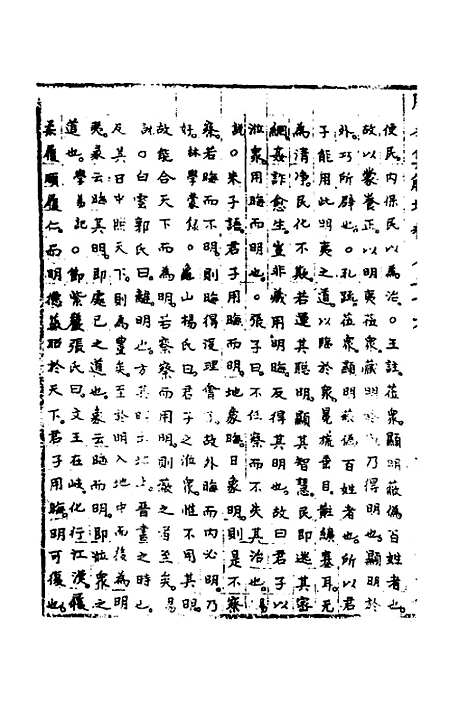 使民内保民以為治。王註莅衆顯明蔽偽百姓者也
故以蒙養正以明夷莅衆藏明於内乃得明也顯明於
外巧所辟也。孔疏莅衆顯明蔽偽百姓者也所以君
子能用此明夷之道以臨於衆冕旒垂目黈纊塞耳无
為清凈民化不欺若運其聰明顯其智慧民即逃其密
網奸詐愈生豈非藏用明晦反得其明也故曰君子以
莅衆用晦而明也。張子曰不任察而不失其治也。易
説。朱子語君子用晦而明地象晦日象明則是不察
察若晦而不明則晦得沒理會了故外晦而内必明乃
好。林學蒙録。龜山楊氏曰君子之莅衆惟不用其明
故能合天下而為明若察察而用明則蔽之者至矣。易
説。白雲郭氏曰離明也方其明出地上晋晝之時也
及其日中照天下則為豐矣至於明入地中而後為明
夷彖云晦其明即處己之道也象云晦而明即莅衆之
道也。學易記。節紫巖張氏曰文王在岐化行江漢履
柔履順履仁而明德蔽功於天下君子用晦明可復也